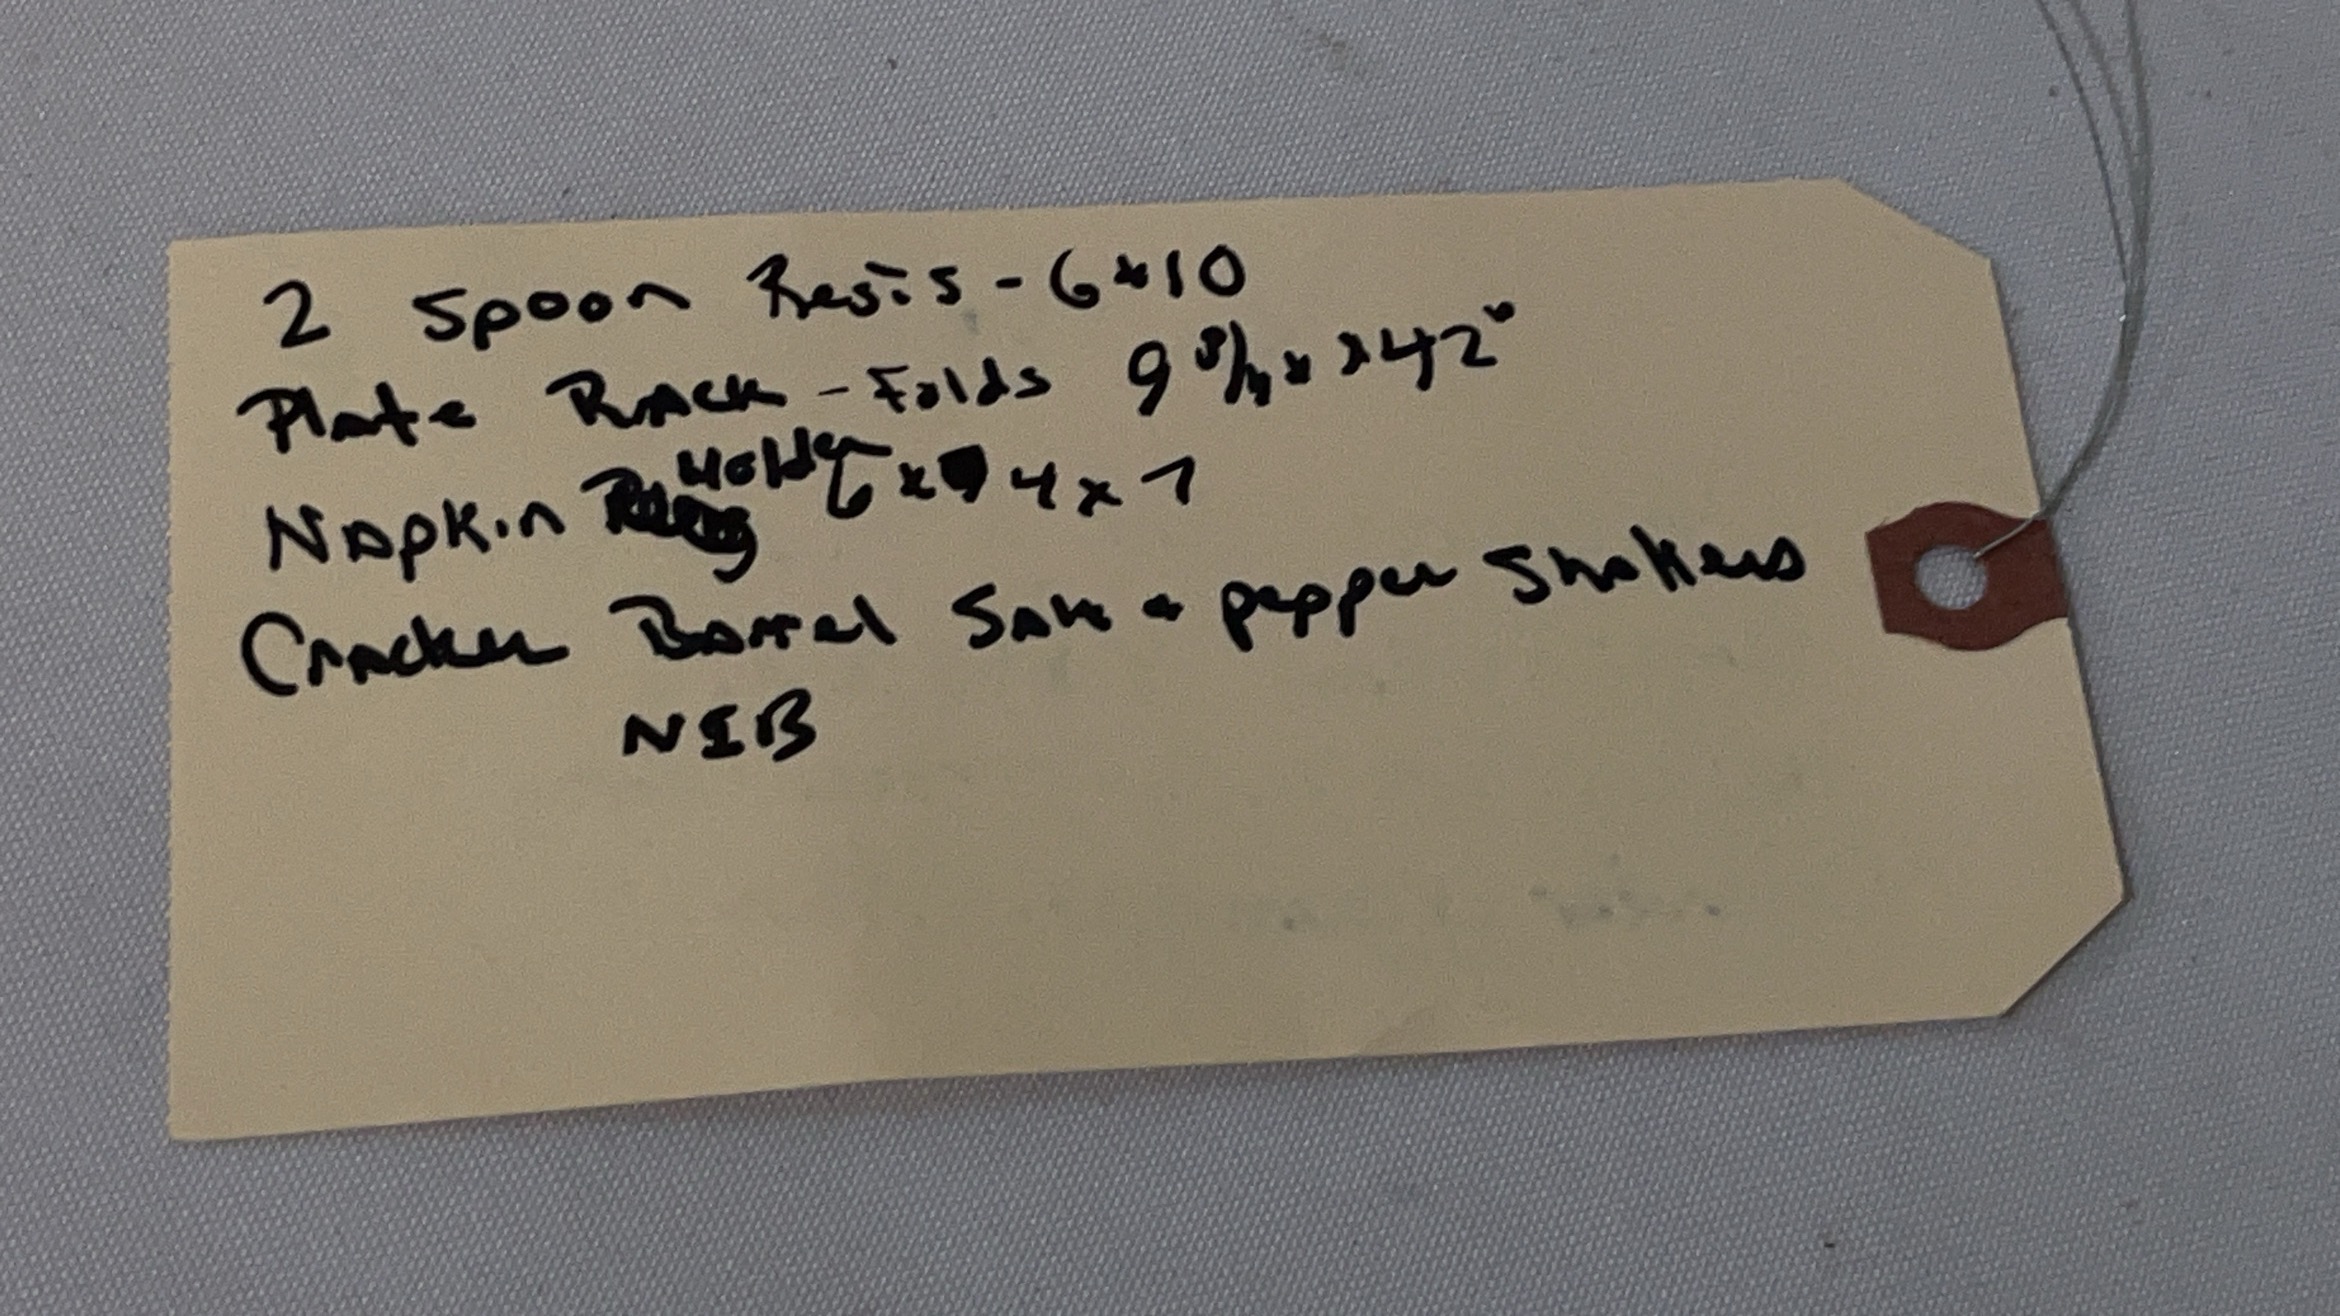 2 Spoon Rests - 6x10
Plate Rack - Folds 9 3/4 x x 42"
Napkin Holder 6 x 4 x 7
Cracker Barrel Salt + pepper Shakers
NIB